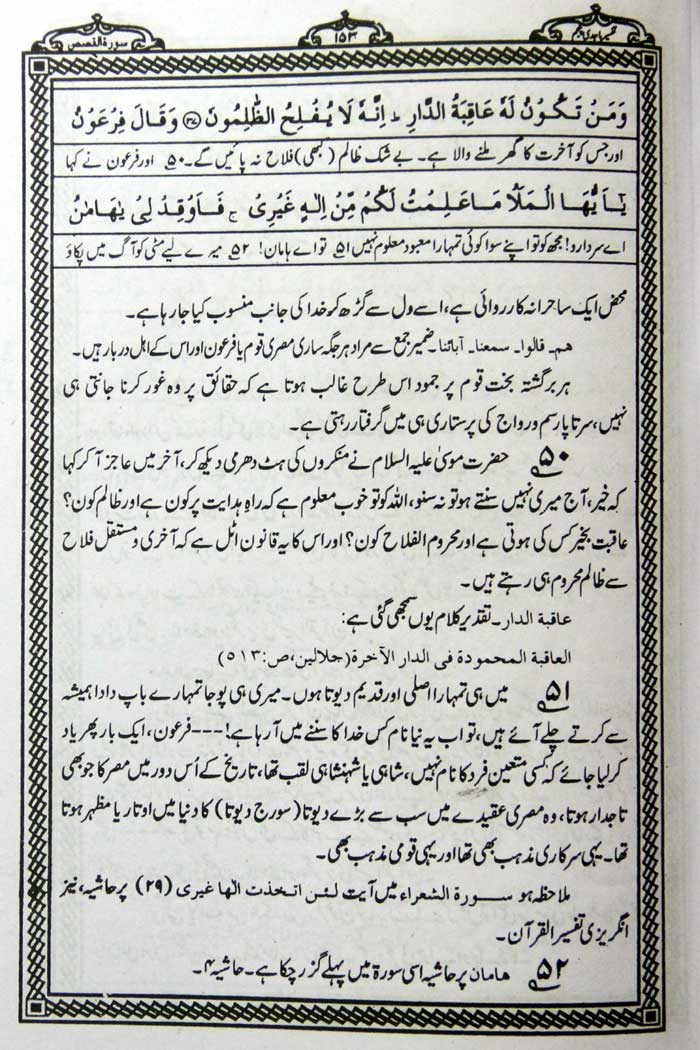 تفسیر ماجدی پنجم
۱۵۳
سورۃ القصص
وَمَنْ تَكُوْنُ لَهٗ عَاقِبَةُ الدَّارِ ؕ اِنَّهٗ لَا يُفْلِحُ الظّٰلِمُوْنَ ﴿۳۷﴾ وَقَالَ فِرْعَوْنُ
اور جس کو آخرت کا گھر ملنے والا ہے۔ بے شک ظالم (کبھی) فلاح نہ پائیں گے۔ ۵۰ اور فرعون نے کہا
يٰۤاَيُّهَا الْمَلَاُ مَا عَلِمْتُ لَكُمْ مِّنْ اِلٰهٍ غَيْرِیْ ۚ فَاَوْقِدْ لِیْ يٰهَامٰنُ
اے سردارو! مجھ کو تو اپنے سوا کوئی تمہارا معبود معلوم نہیں ۵۱ تو اے ہامان! ۵۲ میرے لیے مٹی کو آگ میں پکاؤ
محض ایک ساحرانہ کارروائی ہے، اسے ول سے گڑھ کو خدا کی جانب منسوب کیا جا رہا ہے۔
ھم۔ قالوا۔ سمعنا۔ آبائنا۔ ضمیر جمع سے مراد ہر جگہ ساری مصری قوم یا فرعون اور اس کے اہل دربار ہیں۔
ہر برگشتہ بخت قوم پر جمود اس طرح غالب ہوتا ہے کہ حقائق پر وہ غور کرنا جانتی ہی
نہیں، سرتا پا رسم و رواج کی پرستاری ہی میں گرفتار رہتی ہے۔
۵۰ حضرت موسیٰ علیہ السلام نے منکروں کی ہٹ دھرمی دیکھ کر، آخر میں عاجز آ کر کہا
کہ خیر، آج میری نہیں سنتے ہو تو نہ سنو، اللہ کو تو خوب معلوم ہے کہ راہِ ہدایت پر کون ہے اور ظالم کون؟
عاقبت بخیر کس کی ہوتی ہے اور محروم الفلاح کون؟ اور اس کا یہ قانون اٹل ہے کہ آخری و مستقل فلاح
سے ظالم محروم ہی رہتے ہیں۔
عاقبۃ الدار۔ تقدیر کلام یوں سمجھی گئی ہے:
العاقبة المحمودة فی الدار الآخرة (جلالین، ص:۵۱۳)
۵۱ میں ہی تمہارا اصلی اور قدیم دیوتا ہوں۔ میری ہی پوجا تمہارے باپ دادا ہمیشہ
سے کرتے چلے آئے ہیں، تو اب یہ نیا نام کس خدا کا سننے میں آ رہا ہے!---فرعون، ایک بار پھر یاد
کر لیا جائے کہ کسی متعین فرد کا نام نہیں، شاہی یا شہنشاہی لقب تھا، تاریخ کے اُس دور میں مصر کا جو بھی
تاجدار ہوتا، وہ مصری عقیدے میں سب سے بڑے دیوتا (سورج دیوتا) کا دنیا میں اوتار یا مظہر ہوتا
تھا۔ یہی سرکاری مذہب بھی تھا اور یہی قومی مذہب بھی۔
ملاحظہ ہو سورة الشعراء میں آیت لئن اتخذت الها غیری (۲۹) پر حاشیہ، نیز
انگریزی تفسیر القرآن۔
۵۲ ھامان پر حاشیہ اسی سورۃ میں پہلے گزر چکا ہے۔ حاشیہ ۴۔